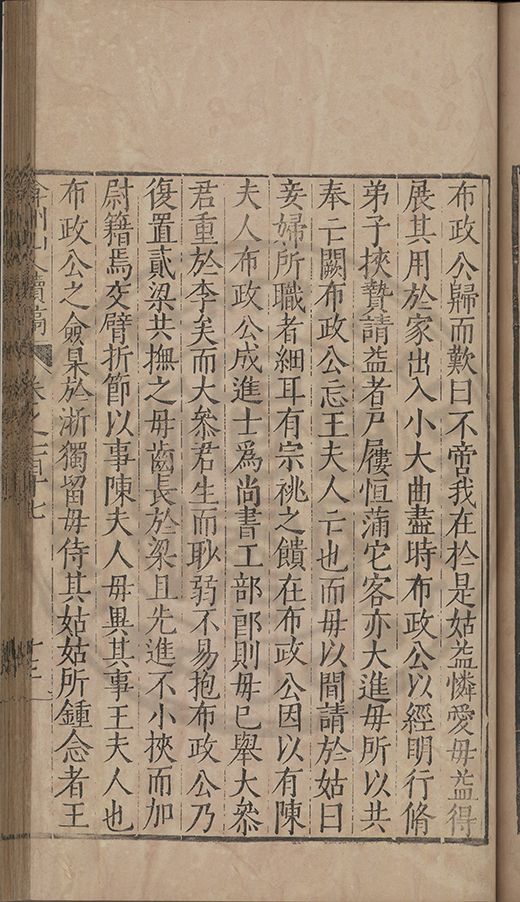 布政公歸而歎曰不啻我在於是姑益憐愛毋益得
展其用於家出入小大曲盡時布政公以經明行脩
弟子挾贄請益者戶屨恒蒲它客亦大進毋所以共
奉亡闕布政公忘王夫人亡也而毋以間請於姑曰
妾婦所職者細耳有宗祧之饋在布政公因以有陳
夫人布政公成進士爲尚書工部郎則毋巳舉大叅
君重於李矣而大叅君生而耿弱不易抱布政公乃
復置貳梁共撫之毋齒長於梁且先進不小挾而加
尉籍焉交臂折節以事陳夫人毋異其事王夫人也
布政公之僉臬於浙獨留毋侍其姑姑所鍾念者王
弇州山人續稿 卷之一百十七